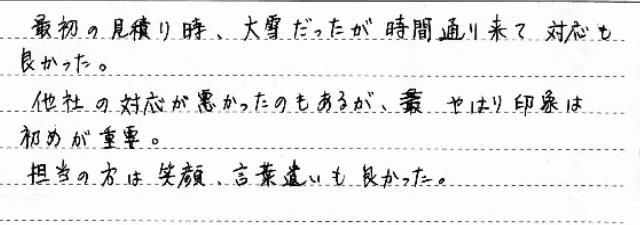 最初の見積り時、大雪だったが時間通り来て対応も
良かった。
他社の対応が悪かったのもあるが、やはり印象は
初めが重要。
担当の方は笑顔、言葉遣いも良かった。